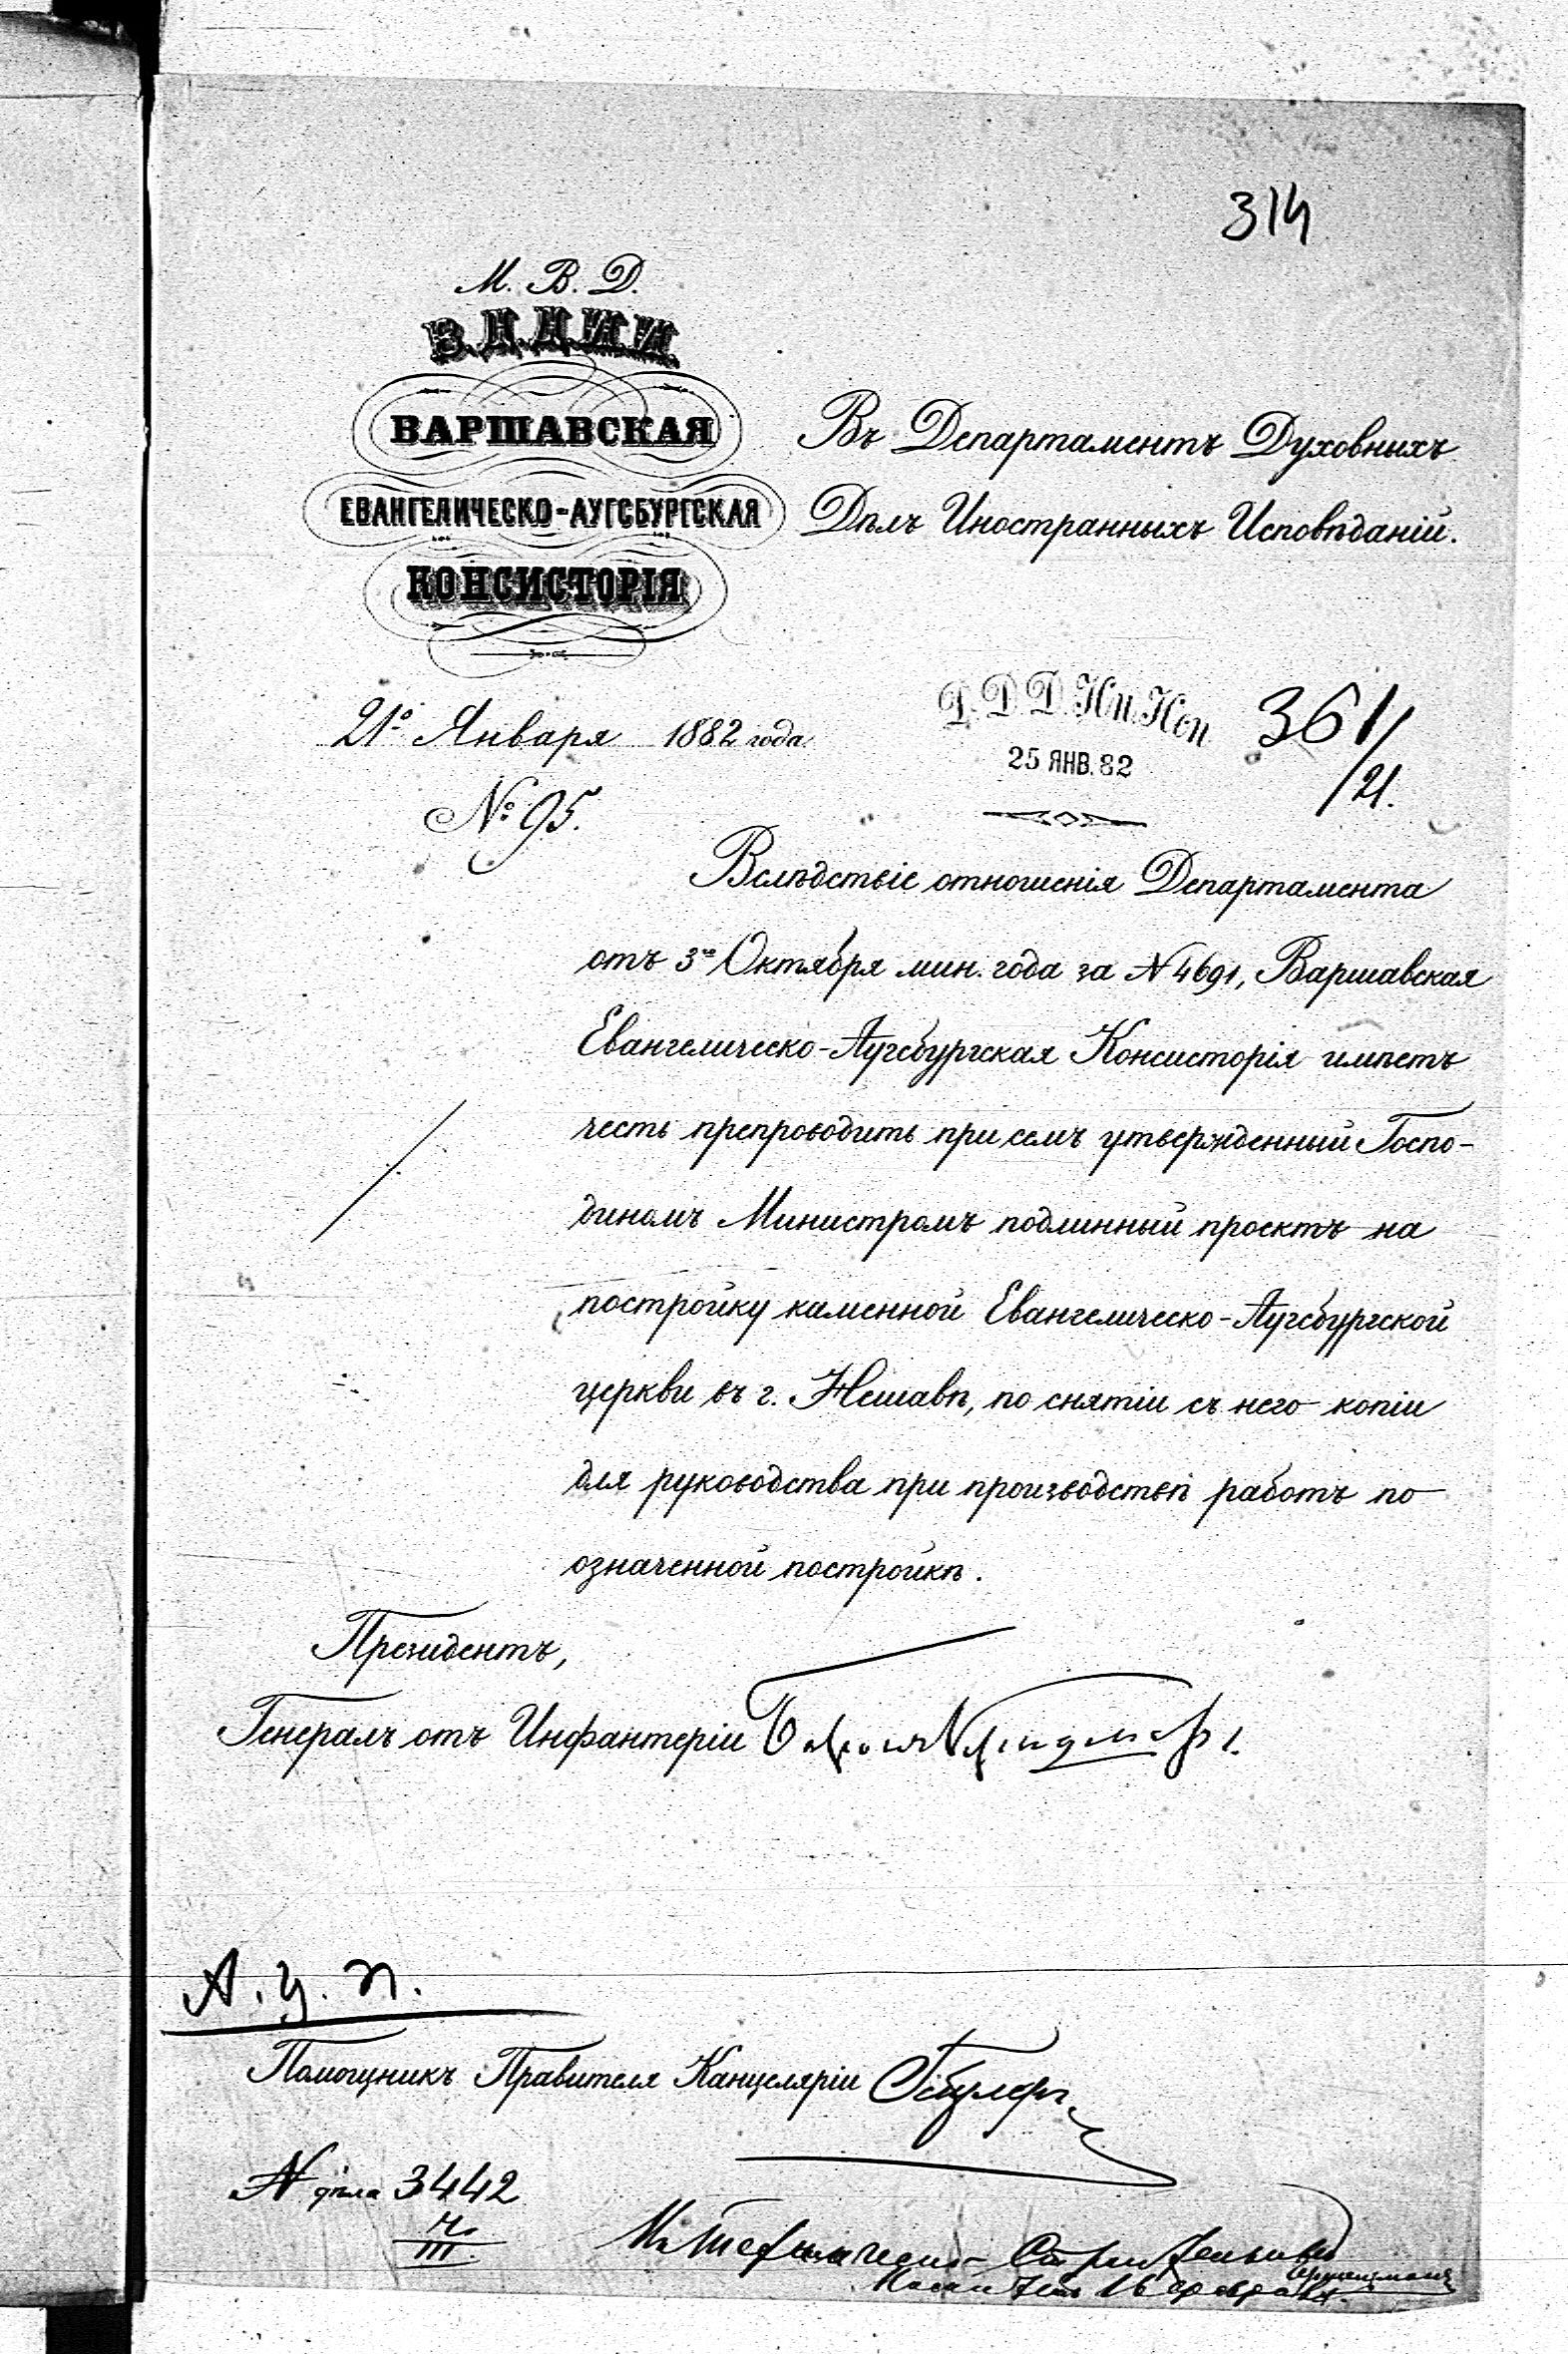 314
М. В. Д.
В. Д. Д. И. И.
ВАРШАВСКАЯ
ЕВАНГЕЛИЧЕСКО-АУГСБУРГСКАЯ
КОНСИСТОРІЯ
Въ Департаментъ Духовныхъ
Дѣлъ Иностранныхъ Исповѣданій.
21го Января 1882 года.
№ 95.
Д. Д. Д. Ин. Исп
25 ЯНВ. 82
361/
/21.
Вслѣдствіе отношенія Департамента
отъ 3го Октября мин. года за № 4691, Варшавская
Евангелическо-Аугсбургская Консисторія имѣетъ
честь препроводить при семъ утвержденный Госпо-
диномъ Министромъ подлинный проектъ на
постройку каменной Евангелическо-Аугсбургской
церкви въ г. Нешавѣ, по снятіи съ него копіи
для руководства при производствѣ работъ по
означенной постройкѣ.
Президентъ,
Генералъ отъ Инфантеріи Баронъ
А. У. П.
Помощникъ Правителя Канцеляріи
№ дѣла 3442
III.